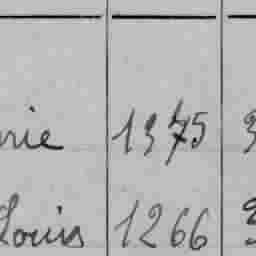 rie 1375 3
Louis 1266